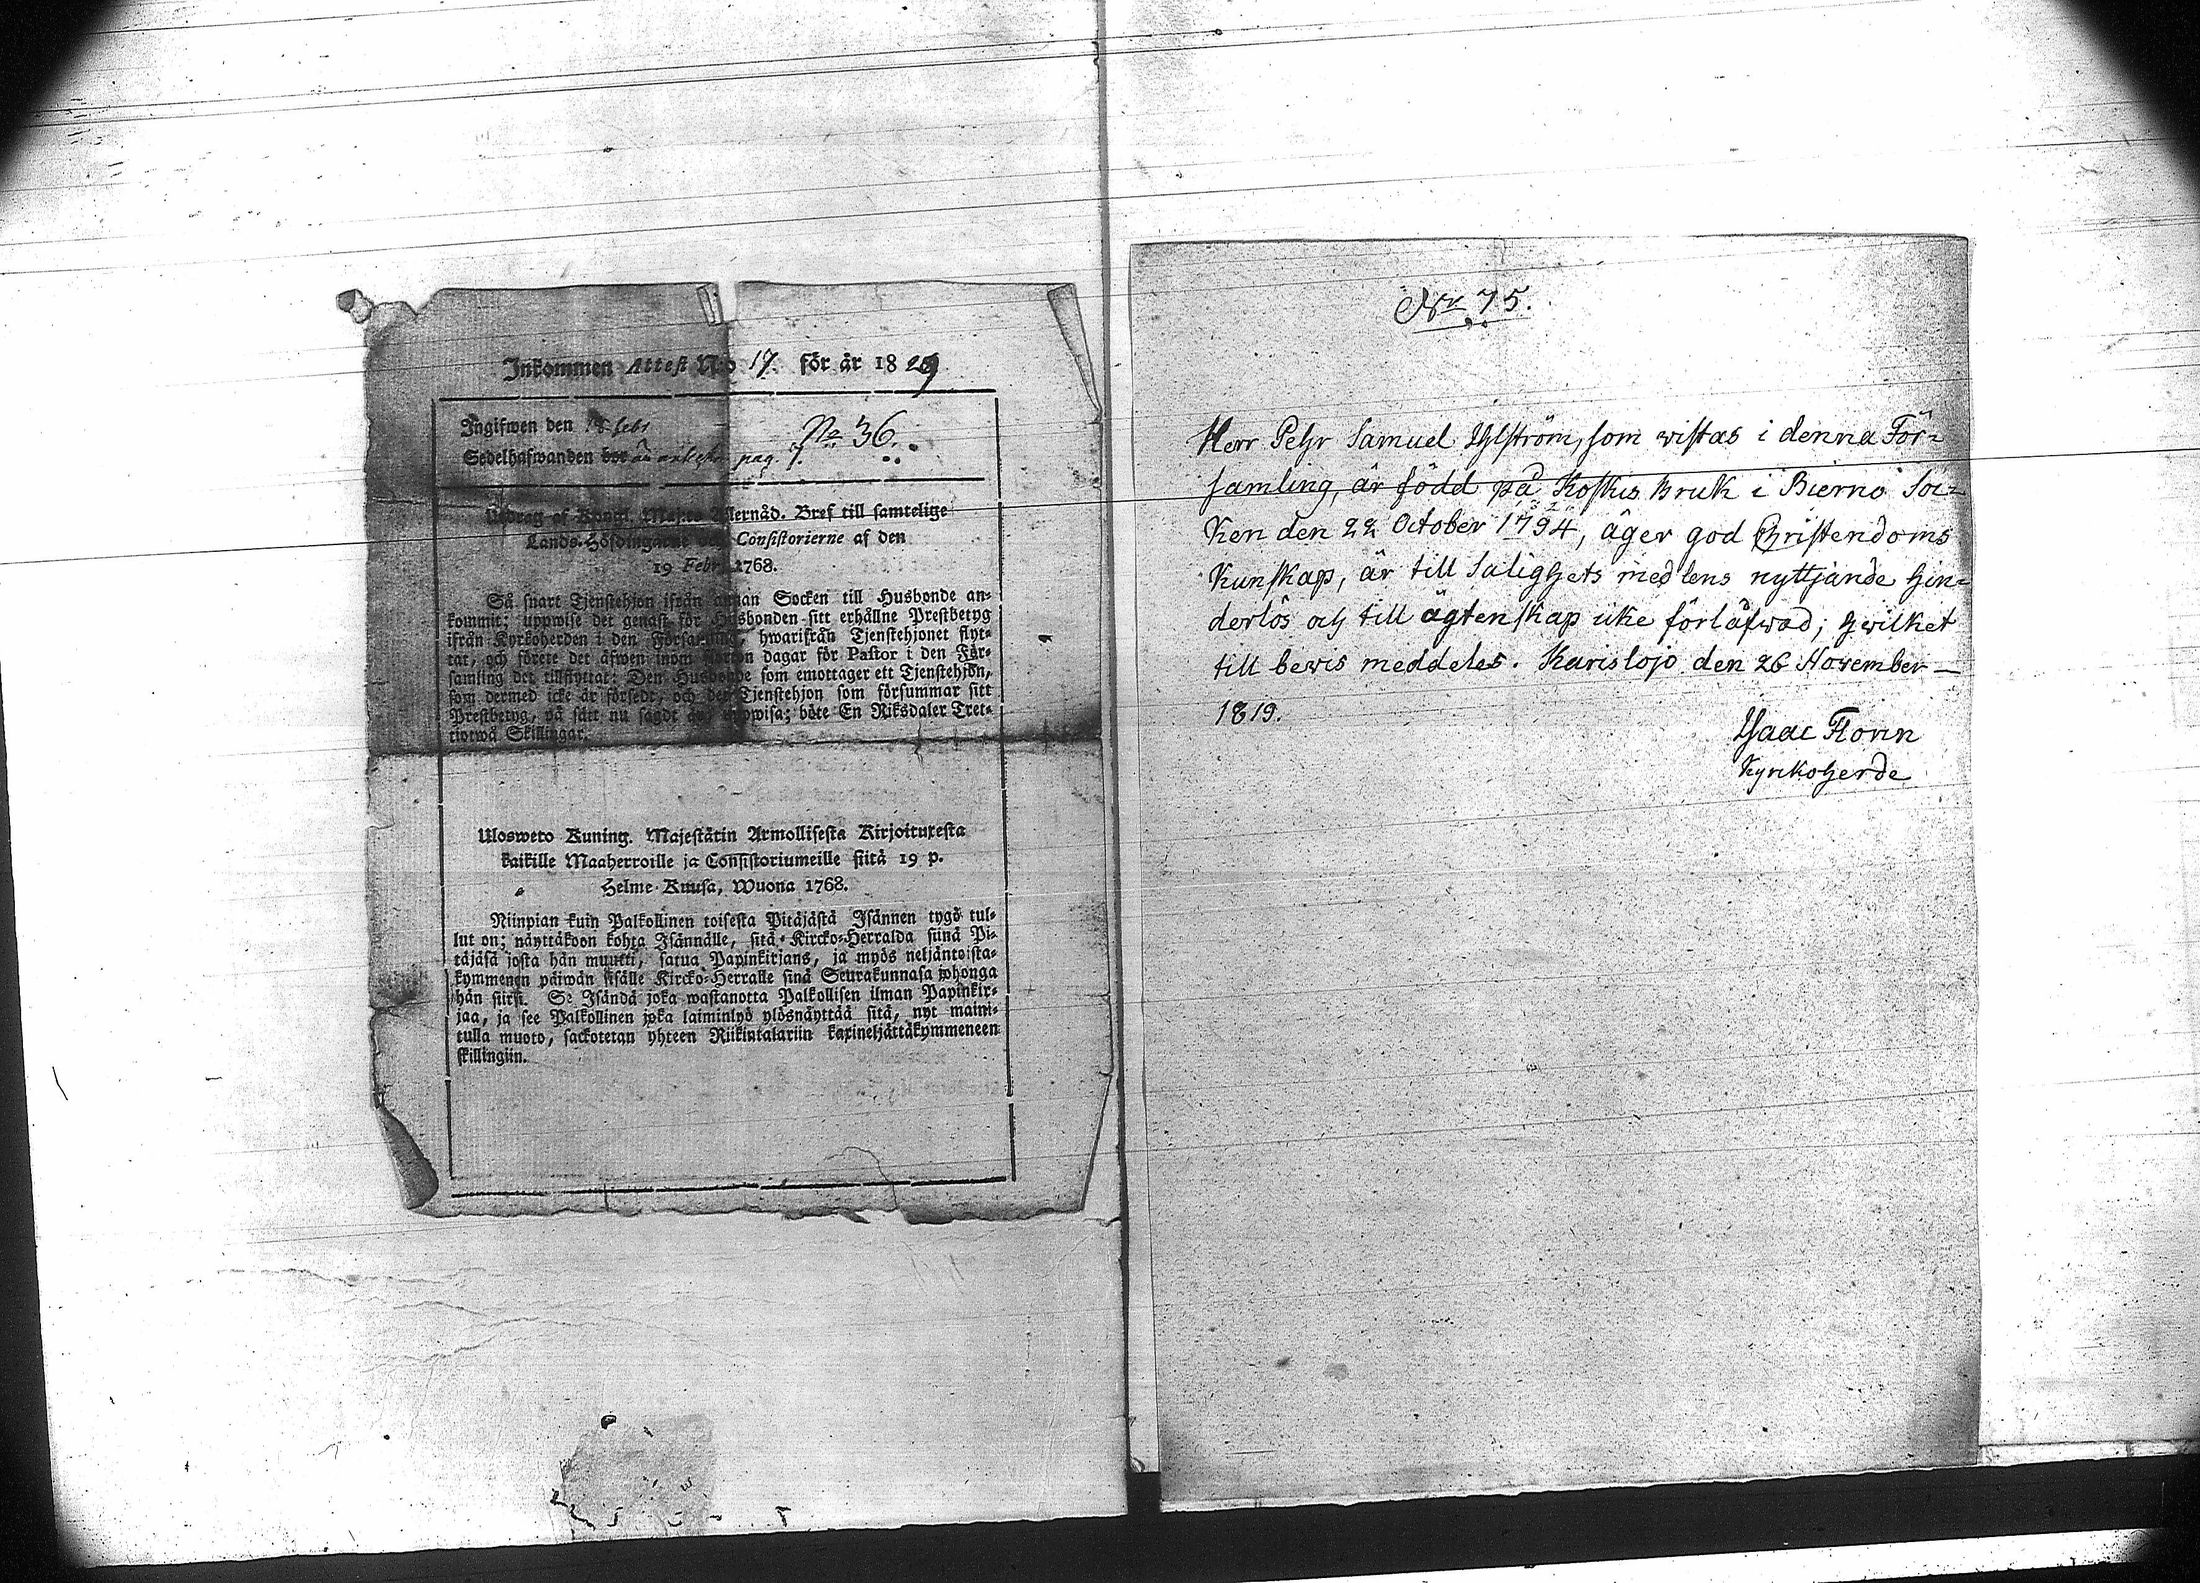 Inkommen Attest N:o 17. för år 1829
Ingifwen den 18 febr
No 36.
Sedelhafwanden bor pag. 7.
Utdrag af Kongl. Maj:ts Allernåd. Bref till samtelige
Lands-Höfdingarne och Consistorierne af den
19 Febr. 1768.
Så snart Tjenstehjon ifrån annan Socken till Husbonde an-
kommit; uppwise det genast för Husbonden sitt erhållne Prestbetyg
ifrån Kyrkoherden i den Församling, hwarifrån Tjenstehjonet flyt-
tat, och förete det äfwen inom fjorton dagar för Pastor i den För-
samling det tillflyttat: Den Husbonde som emottager ett Tjenstehjon,
som dermed icke är försedt, och det Tjenstehjon som försummar sitt
Prestbetyg, på sätt nu sagdt är, uppwisa; böte En Riksdaler Tret-
tiotwå Skillingar.
Ulosweto Kuning. Majestätin Armollisesta Kirjoituxesta
kaikille Maaherroille ja Consistoriumeille siitä 19 p.
Helme-Kuusa, Wuona 1768.
Niinpian kuin Palkollinen toisesta Pitäjästä Isännen tygö tul-
lut on; näyttäkoon kohta Isännälle, sitä Kircko-Herralda siinä Pi-
täjäsä josta hän muutti, saatua Papinkirjans, ja myös neljäntoista-
kymmenen päiwän sisälle Kircko-Herralle siinä Seurakunnasa johonga
hän siirsi. Se Isändä joka wastanotta Palkollisen ilman Papinkir-
jaa, ja see Palkollinen joka laiminlyö ylösnäyttää sitä, nyt maini-
tulla muoto, sackotetan yhteen Riikintalariin kaxineljättäkymmeneen
skillingiin.
No 75.
Herr Pehr Samuel Ahlström, som wistas i denna För-
samling, är född på Koskis Bruk i Bierno Soc-
ken den 22 October 1794, äger god Christendoms
Kunskap, är till Salighets medlens nyttjande hin-
derlös och till ägtenskap icke förläfwad; hwilket
till bewis meddeles. Karislojo den 26 November
1819.
Isaac Florin
Kyrkoherde